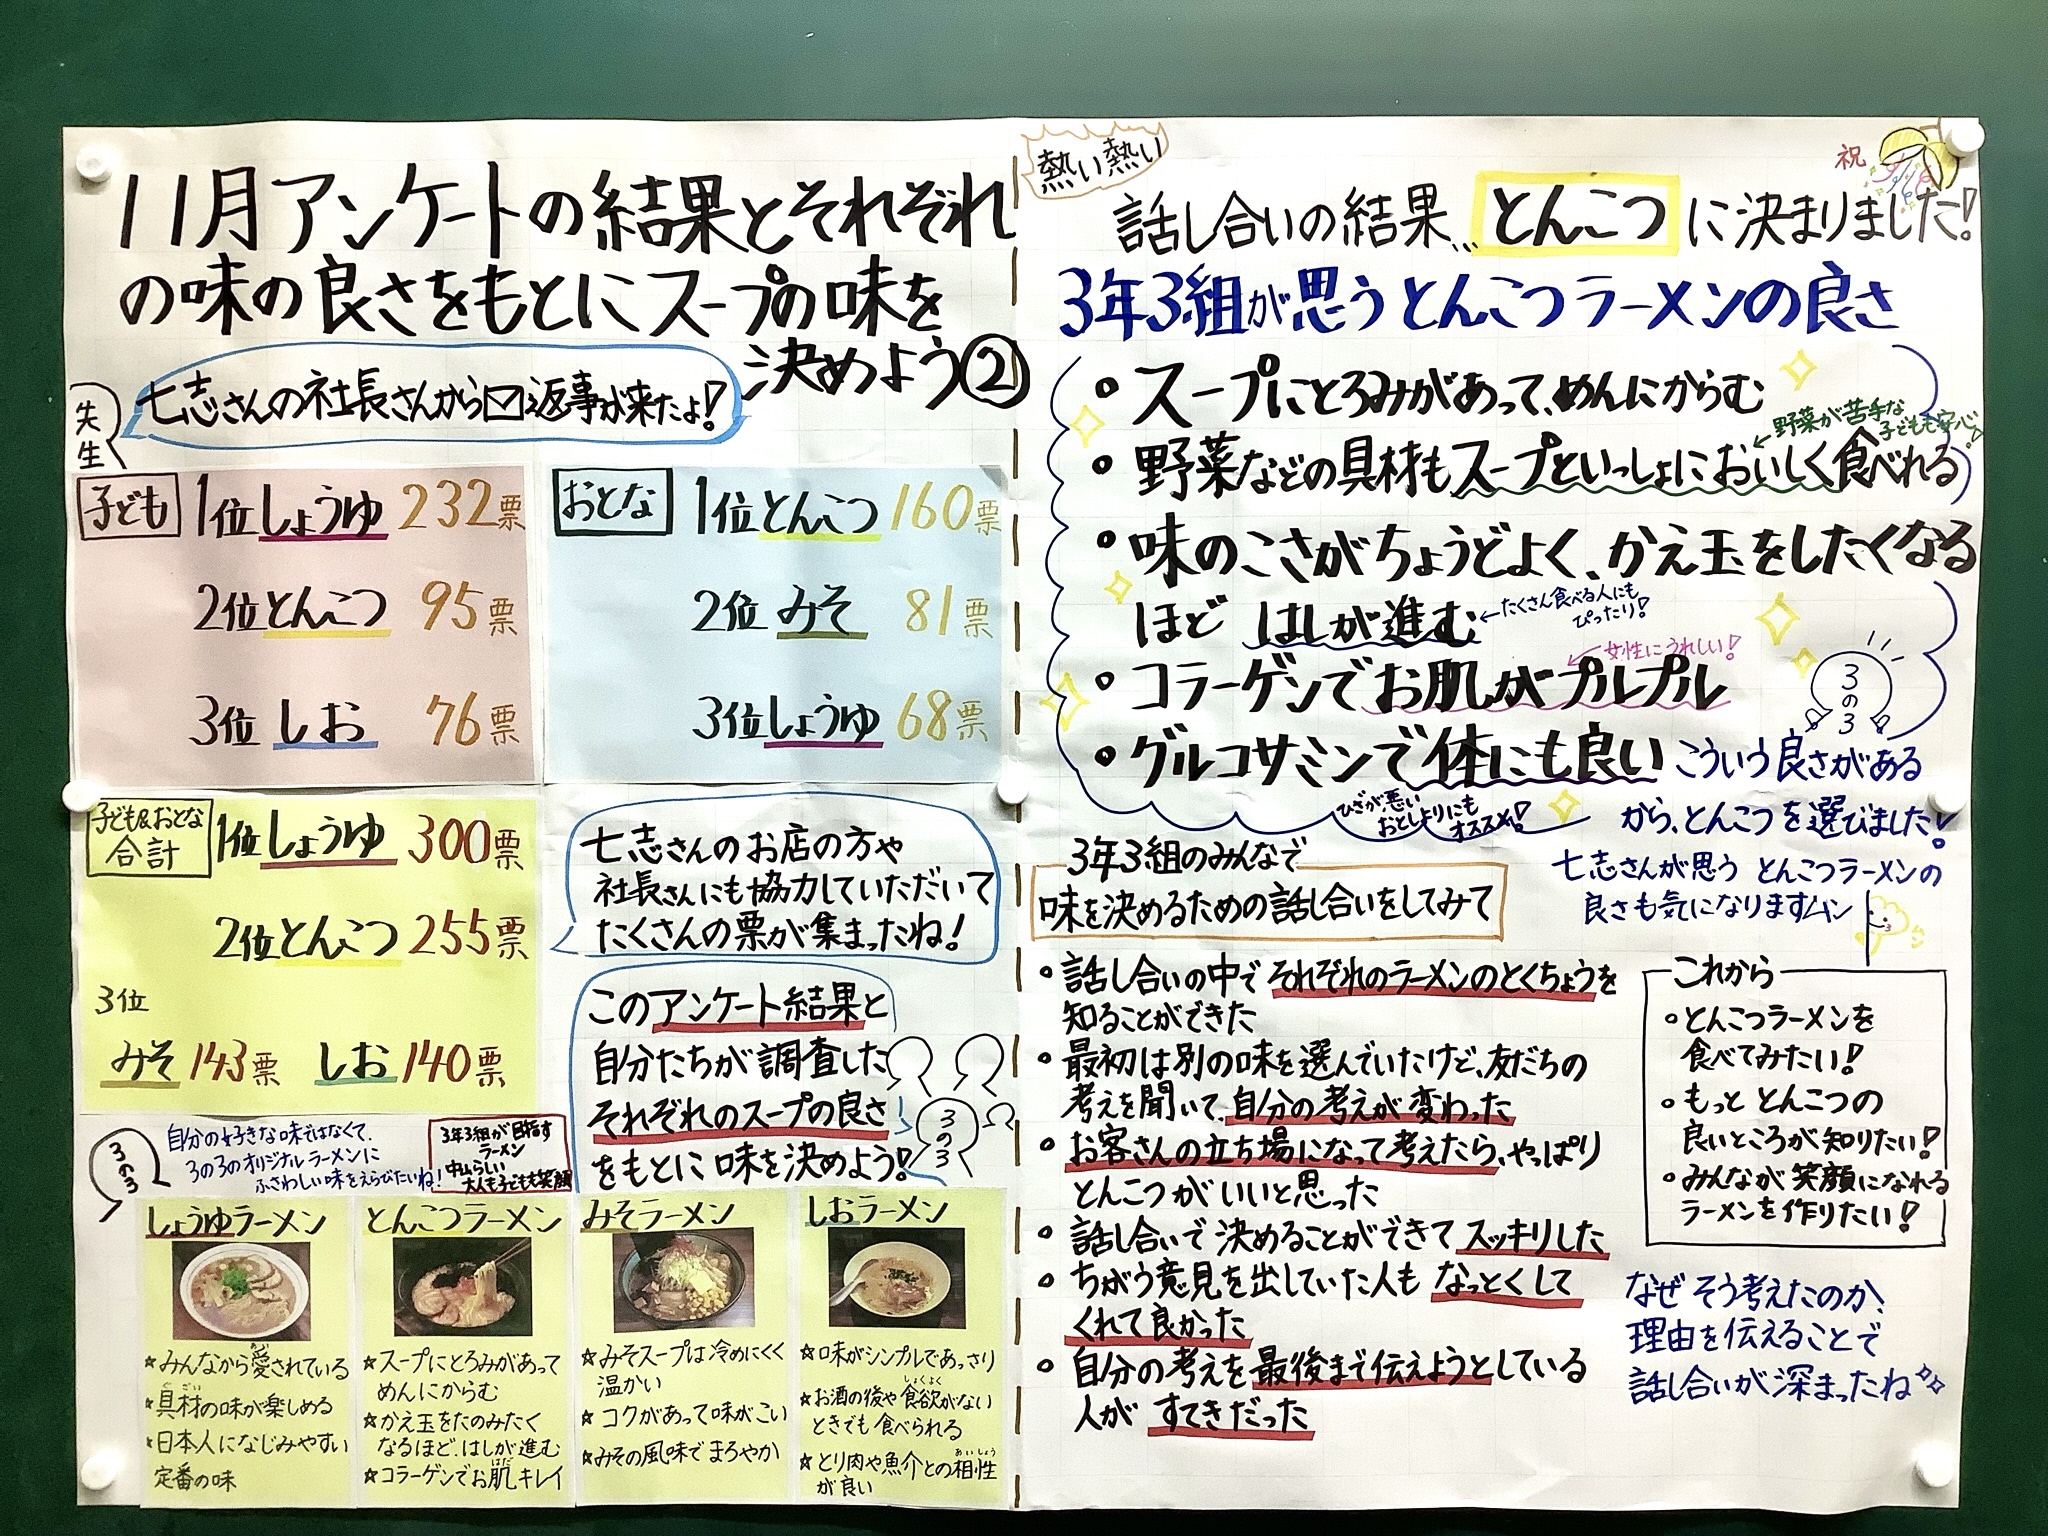 11月アンケートの結果とそれぞれ
の味の良さをもとにスープの味を
決めよう②
先生
七志さんの社長さんから返事が来たよ!
子ども
1位しょうゆ 232票
2位とんこつ 95票
3位しお 76票
おとな
1位とんこつ 160票
2位みそ 81票
3位しょうゆ 68票
子ども&おとな
合計
1位しょうゆ 300票
2位とんこつ 255票
3位
みそ143票 しお140票
七志さんのお店の方や
社長さんにも協力していただいて
たくさんの票が集まったね!
このアンケート結果と
自分たちが調査した
それぞれのスープの良さ
をもとに味を決めよう!
3の3
3の3
自分の好きな味ではなくて、
3の3のオリジナルラーメンに
ふさわしい味をえらびたいね!
3年3組が目指す
ラーメン
中山らしい
大人も子どもも笑顔
しょうゆラーメン
☆みんなから愛されている
☆具材の味が楽しめる
☆日本人になじみやすい
定番の味
とんこつラーメン
☆スープにとろみがあって
めんにからむ
☆かえ玉をたのみたく
なるほど、はしが進む
☆コラーゲンでお肌キレイ
みそラーメン
☆みそスープは冷めにくく
温かい
☆コクがあって味がこい
☆みその風味でまろやか
しおラーメン
☆味がシンプルであっさり
☆お酒の後や食欲がない
ときでも食べられる
☆とり肉や魚介との相性
が良い
熱い熱い
祝
話し合いの結果…とんこつに決まりました!
3年3組が思うとんこつラーメンの良さ
・スープにとろみがあって、めんにからむ
←野菜が苦手な
子どもも安心!
・野菜などの具材もスープといっしょにおいしく食べれる
・味のこさがちょうどよく、かえ玉をしたくなる
ほど はしが進む
←たくさん食べる人にも
ぴったり!
←女性にうれしい!
・コラーゲンでお肌がプルプル
3の3
・グルコサミンで体にも良い
ひざが悪い
おとしよりにも
オススメ!
こういう良さがある
から、とんこつを選びました!
七志さんが思うとんこつラーメンの
良さも気になりますムン
ムン
3年3組のみんなで
味を決めるための話し合いをしてみて
・話し合いの中でそれぞれのラーメンのとくちょうを
知ることができた
・最初は別の味を選んでいたけど、友だちの
考えを聞いて、自分の考えが変わった
・お客さんの立ち場になって考えたら、やっぱり
とんこつがいいと思った
・話し合いで決めることができてスッキリした
・ちがう意見を出していた人もなっとくして
くれて良かった
・自分の考えを最後まで伝えようとしている
人がすてきだった
これから
・とんこつラーメンを
食べてみたい!
・もっととんこつの
良いところが知りたい!
・みんなが笑顔になれる
ラーメンを作りたい!
なぜそう考えたのか、
理由を伝えることで
話し合いが深まったね